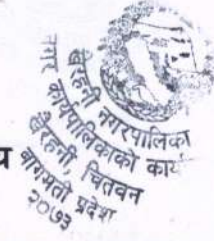 खैरहनी नगरपालिका
नगर कार्यपालिकाको कार्य
खैरहनी, चितवन
बागमती प्रदेश
२०७३
य